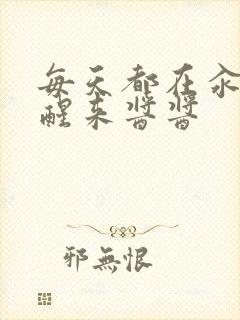 每天都在汆
醒来酱酱
邪無恨